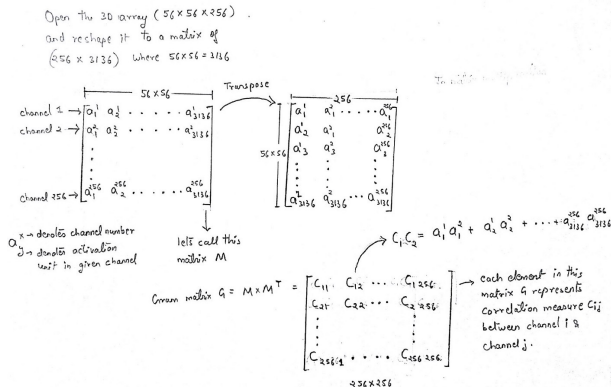 Open the 3D array (56×56×256)
and reshape it to a matrix of
(256 × 3136) where 56×56 = 3136
56×56
Transpose
256
channel 1 → a¹₁ a¹₂ . . . . . . a¹₃₁₃₆
channel 2 → a²₁ a²₂ . . . . . . a²₃₁₃₆
channel 256 → a²⁵⁶₁ a²⁵⁶₂ . . . . . . a²⁵⁶₃₁₃₆
56×56
a¹₁ a²₁ . . . . . a²⁵⁶₁
a¹₂ a²₁ a²⁵⁶₂
a¹₃ a²₃ a²⁵⁶₃
a²₃₁₃₆ a²₃₁₃₆ . . . a²⁵⁶₃₁₃₆
aˣᵧ x → denotes channel number
y → denotes activation
unit in given channel
lets call this
matrix M
C₁C₂ = a¹₁ a²₁ + a¹₂ a²₂ + . . . . + a²⁵⁶₃₁₃₆ a²⁵⁶₃₁₃₆
Gram matrix G = M × Mᵀ =
C₁₁ C₁₂ . . . . C₁ ₂₅₆
C₂₁ C₂₂ . . . C₂ ₂₅₆
C₂₅₆ ₁ . . . . . C₂₅₆ ₂₅₆
256×256
→ each element in this
matrix G represents
correlation measure Cᵢⱼ
between channel i &
channel j.